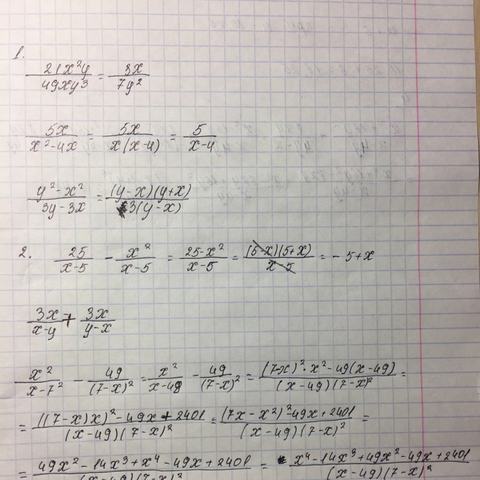 1.
21x²y/49xy³ = 3x/7y²
5x/x²-4x = 5x/x(x-4) = 5/x-4
y²-x²/3y-3x = (y-x)(y+x)/3(y-x)
2. 25/x-5 - x²/x-5 = 25-x²/x-5 = (5-x)(5+x)/x-5 = -5+x
3x/x-y + 3x/y-x
x²/x-7² - 49/(7-x)² = x²/x-49 - 49/(7-x)² = (7-x)²·x²-49(x-49)/(x-49)(7-x)² =
= ((7-x)x)²-49x+2401/(x-49)(7-x)² = (7x-x²)²49x+2401/(x-49)(7-x)² =
= 49x²-14x³+x⁴-49x+2401/(x-49)(7-x)² = x⁴-14x³+49x²-49x+2401/(x-49)(7-x)²